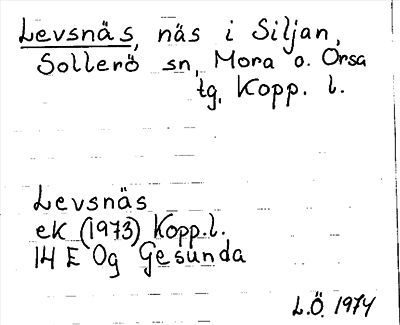 Levsnäs, näs i Siljan,
Sollerö sn, Mora o. Orsa
tg, Kopp. l.
Levsnäs
ek (1973) Kopp.l.
14 E 0g Gesunda
L.Ö. 1974